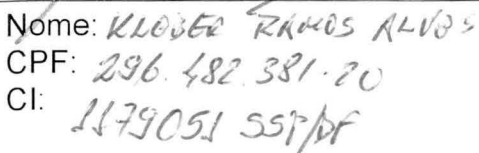 Nome: KLEBER RAMOS ALVES
CPF: 296.482.381-20
CI:
1179051 SSP/DF